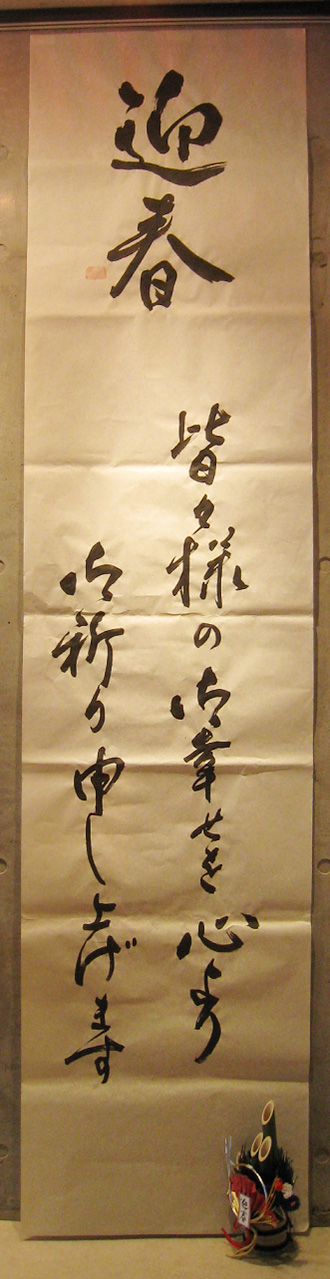 迎春
皆々様の御幸せを心より
御祈り申し上げます